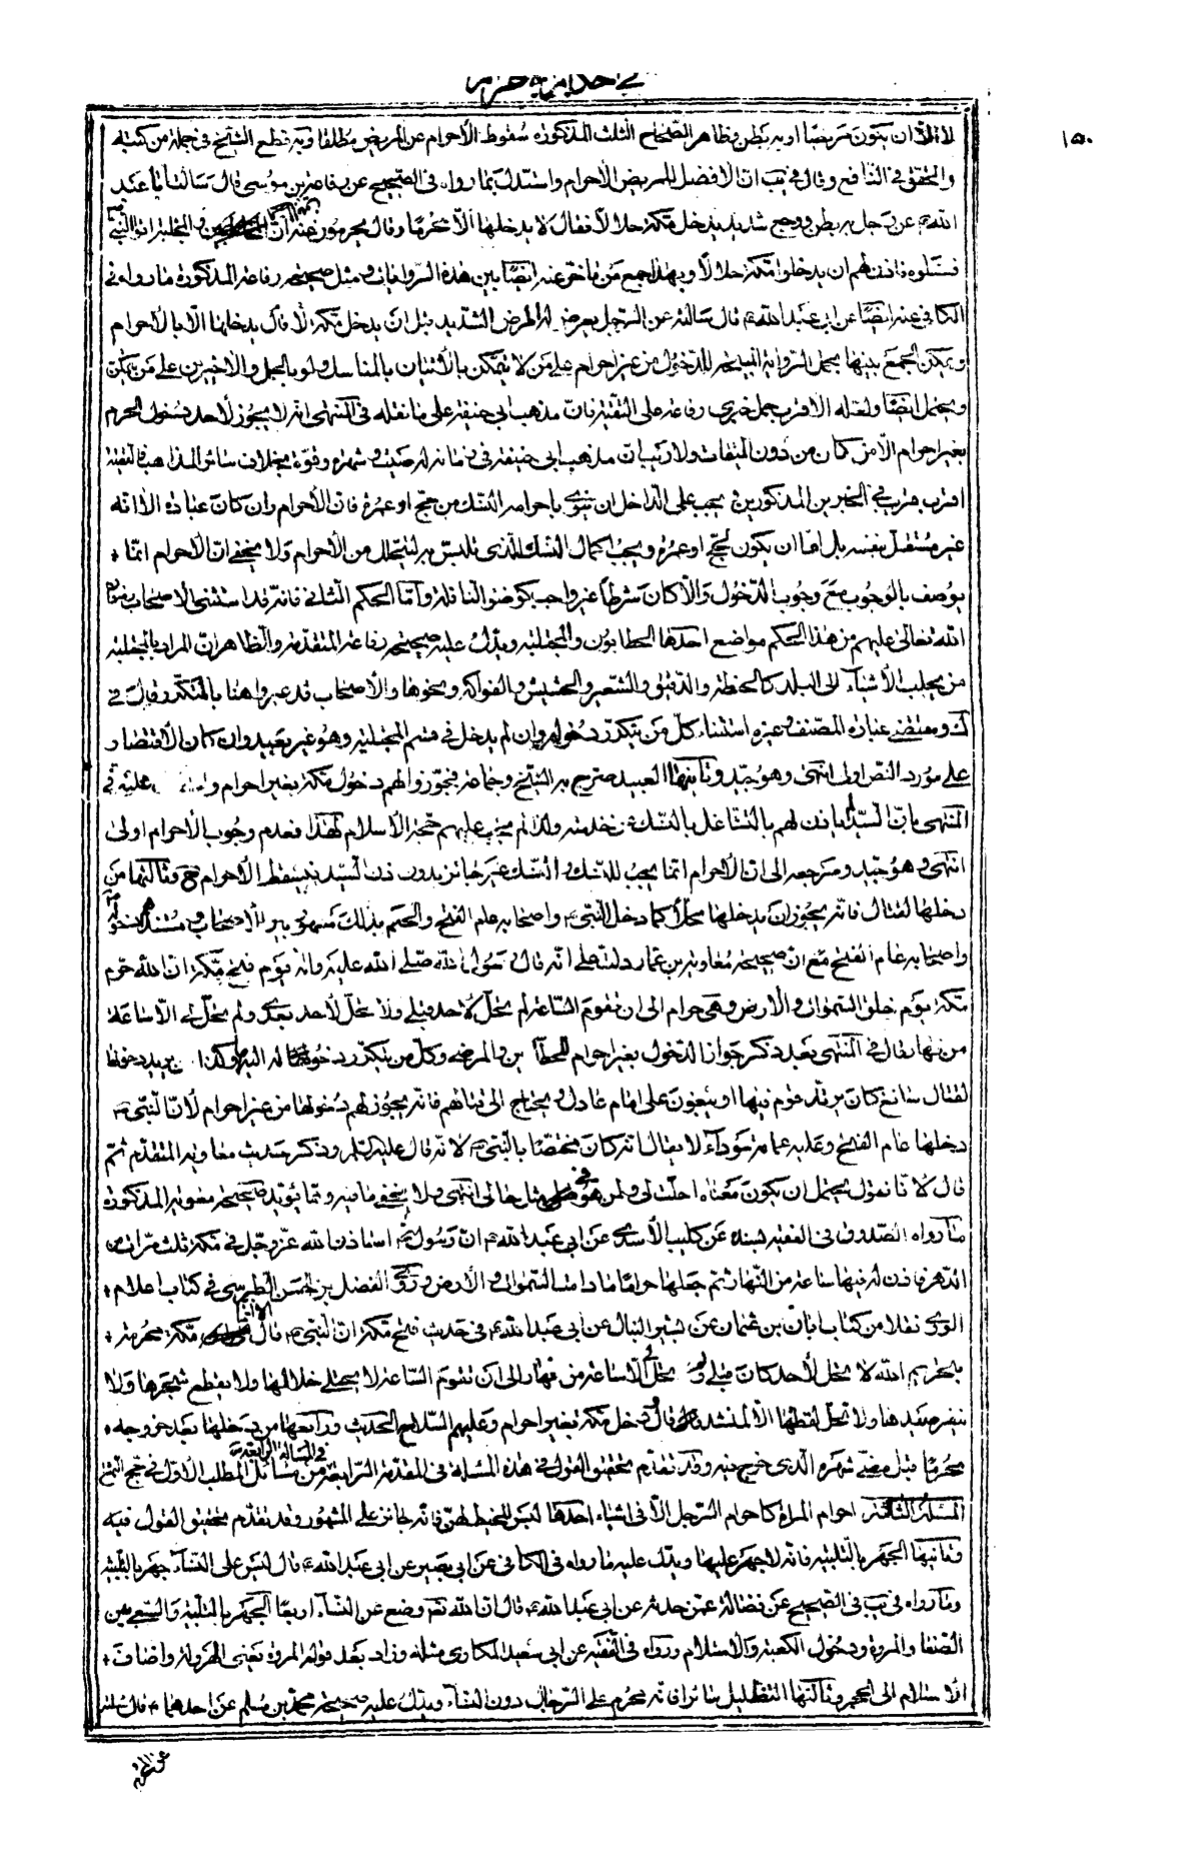 في احكام الاحرام
١٥٠
لا الا ان يكون مريضا او به بطن وظاهر الصحاح الثلث المذكورة سقوط الاحرام عن المريض مطلقا وبه قطع الشيخ في جملة من كتبه
والمحقق في النافع وقال في يب ان الافضل للمريض الاحرام واستدل بما رواه في الصحيح عن رفاعة بن موسى قال سالت ابا عبد
الله ع عن رجل به بطن ووجع شديد يدخل مكة حلالا فقال لا يدخلها الا محرما وقال يحرمون عنه ان والمجتلبة اتوا النبي ص
فسئلوه فاذن لهم ان يدخلوا مكة حلالا وبهذا جمع من تاخر عنه ايضا بين هذه الروايات ومثل صحيحة رفاعة المذكورة ما رواه في
الكافي عنه ايضا عن ابي عبد الله ع قال سالته عن الرجل يعرض له المرض الشديد قبل ان يدخل مكة قال لا يدخلها الا بالاحرام
ويمكن الجمع بينها بحمل الرواية المبيحة للدخول من غير احرام على من لا يتمكن بالاتيان بالمناسك ولو بالحمل والاخيرين على من يتمكن
ويحتمل ايضا ولعله الاقرب حمل خبري رفاعة على التقية فان مذهب ابي حنيفة على ما نقله في المنتهى انه لا يجوز لاحد دخول الحرم
بغير احرام الا من كان من دون الميقات ولا ريب ان مذهب ابي حنيفة في زمانه له صيت وشهرة وقوة بخلاف سائر المذاهب فالتقية
اقرب قريب في الخبرين المذكورين ثم يجب على الداخل ان ينوي باحرامه النسك من حج او عمرة فان الاحرام وان كان عبادة الا انه
غير مستقل بنفسه بل اما ان يكون لحج او عمرة ويجب اكمال النسك الذي تلبس به ليتحلل من الاحرام ولا يخفى ان الاحرام انما
يوصف بالوجوب مع وجوب الدخول والا كان شرطا غير واجب كوضوء النافلة واما الحكم الثاني فانه قد استثنى الاصحاب رضوان
الله تعالى عليهم من هذا الحكم مواضع احدها الحطابون والمجتلبة ويدل عليه صحيحة رفاعة المتقدمة والظاهر ان المراد بالمجتلبة
من يجلب الاشياء الى البلد كالحنطة والدقيق والشعير والحشيش والفواكه ونحوها والاصحاب قد عبروا هنا بالمتكرر وقال في
ك ومقتضى عبارة المصنف وغيره استثناء كل من يتكرر دخوله وان لم يدخل في قسم المجتلبة وهو غير بعيد وان كان الاقتصار
على مورد النص اولى انتهى وهو جيد وثانيها العبيد صرح به الشيخ وجماعة فجوزوا لهم دخول مكة بغير احرام عليه في
المنتهى بان السيد لم ياذن لهم بالتشاغل بالنسك عن خدمته واذا لم يجب عليهم حجة الاسلام لهذا فعدم وجوب الاحرام اولى
انتهى وهو جيد ومرجعه الى ان الاحرام انما يجب للنسك والنسك غير جائز بدون اذن السيد فيسقط الاحرام ح وثالثها من
دخلها لقتال فانه يجوز ان يدخلها محلا كما دخل النبي ص واصحابه عام الفتح والحكم بذلك مشهور بين الاصحاب ومستندهم دخوله ص
واصحابه عام الفتح مع ان صحيحة معاوية بن عمار دلت على انه قال رسول الله صلى الله عليه واله يوم فتح مكة ان الله حرم
مكة يوم خلق السموات والارض وهي حرام الى ان تقوم الساعة لم تحل لاحد قبلي ولا تحل لاحد بعدي ولم تحل لي الا ساعة
من نهار وقال في المنتهى بعد ذكر جواز الدخول بغير احرام للحطابين والمرضى وكل من يتكرر دخوله وكذا من يريد دخولها
لقتال سائغ كان يرتد قوم فيها او يبغون على امام عادل ويحتاج الى قتالهم فانه يجوز لهم دخولها من غير احرام لان النبي ص
دخلها عام الفتح وعليه عمامة سوداء لا يقال انه كان مختصا بالنبي ص لانه قال عليه السلام وذكر حديث معاوية المتقدم ثم
قال لانا نقول يحتمل ان يكون معناه احلت لي ولمن هو في مثل حالي انتهى ولا يخفى ما فيه ومما يؤيد صحيحة معوية المذكورة
ما رواه الصدوق في الفقيه بسنده عن كليب الاسدي عن ابي عبد الله ع ان رسول الله ص استاذن الله عز وجل في مكة ثلث مرات من
الدهر فاذن له فيها ساعة من النهار ثم جعلها حراما ما دامت السموات والارض وروى الفضل بن الحسن الطبرسي في كتاب اعلام
الورى نقلا من كتاب ابان بن عثمان عن بشير النبال عن ابي عبد الله ع في حديث فتح مكة ان النبي ص قال الا ان مكة محرمة
بتحريم الله لا تحل لاحد كان قبلي ولم تحل لي الا ساعة من نهار الى ان تقوم الساعة لا يختلى خلالها ولا يقطع شجرها ولا
ينفر صيدها ولا تحل لقطتها الا لمنشد قال ودخل مكة بغير احرام وعليهم السلاح الحديث ورابعها من دخلها بعد خروجه
محرما قبل مضي شهره الذي خرج فيه وقد تقدم تحقيق القول في هذه المسئلة في المقدمة الرابعة في المسألة الرابعة من مسائل المطلب الاول في حج التمتع
المسئلة الثالثة احرام المراة كاحرام الرجل الا في اشياء احدها لبس المخيط لهن فانه جائز على المشهور وقد تقدم تحقيق القول فيه
وثانيها الجهر بالتلبية فانه لا جهر عليها ويدل عليه ما رواه في الكافي عن ابي بصير عن ابي عبد الله ع قال ليس على النساء جهر بالتلبية
وما رواه في يب في الصحيح عن فضالة عمن حدثه عن ابي عبد الله ع قال ان الله تعم وضع عن النساء اربعا الجهر بالتلبية والسعي بين
الصفا والمروة ودخول الكعبة والاستلام ورواه في الفقيه عن ابي سعيد المكاري مثله وزاد بعد قوله المروة يعني الهرولة واضاف
الاستلام الى الحجر وثالثها التظليل سائرا فانه محرم على الرجال دون النساء ويدل عليه صحيحة محمد بن مسلم عن احدهما ع قال سالته
عن المحرم